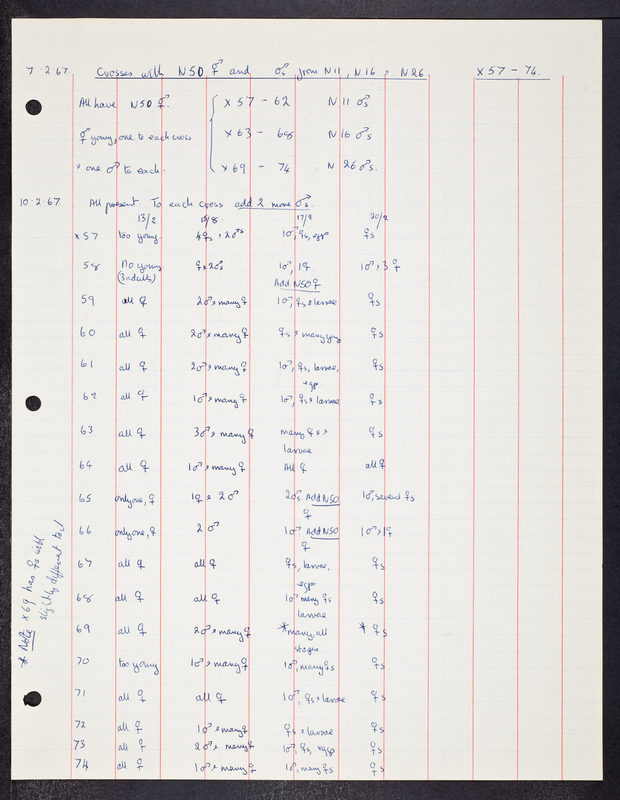 7.2.67. Crosses with N50 ♀ and ♂s from N11, N16 & N26. X57 – 74.
All have N50 ♀. X57 – 62 N11 ♂s
♀ young, one to each cross X63 – 68 N16 ♂s
& one ♂ to each. X69 – 74 N26 ♂s.
10.2.67. All present. To each cross add 2 more ♂s.
13/2 15/2 17/2 20/2
X57 too young. 4♀s & 2♂s 1♂, ♀s, egg ♀s
58 No young ♀ & 2♂s 1♂, 1♀ 1♂ & 3♀
(3 adults) Add N50♀
59 all ♀ 2♂ & many♀ 1♂, ♀s & larvae ♀s
60 all ♀ 2♂ & many♀ ♀s & many ♀s
61 all ♀ 2♂ & many♀ 1♂, ♀s, larvae, ♀s
egg.
62 all ♀ 1♂ & many♀ 1♂, ♀s & larvae ♀s
63 all ♀ 3♂ & many♀ many ♀s & ♀s
larvae
64 all ♀ 1♂ & many♀ All ♀ all ♀
65 only one, ♀ 1♀ & 2♂ 2♂s. Add N50 1♂, several ♀s
♀
66 only one, ♀ 2♂ 1♂ Add N50 1♂ & 1♀
♀
67 all ♀ all ♀ ♀s, larvae, ♀s
egg.
68 all ♀ all ♀ 1♂ many ♀s ♀s
larvae
69 all ♀ 2♂ & many♀ *many, all * ♀s
stages
70 too young 1♂ & many♀ 1♂, many♀s ♀s
71 all ♀ all ♀ 1♂, ♀s & larvae ♀s
72 all ♀ 1♂ & many♀ ♀s & larvae ♀s
73 all ♀ 2♂ & many♀ 1♂, ♀s, egg ♀s
74 all ♀ 1♂ & many♀ 1♂, many♀s ♀s
* Note X69 has ♀s with
slightly different tail